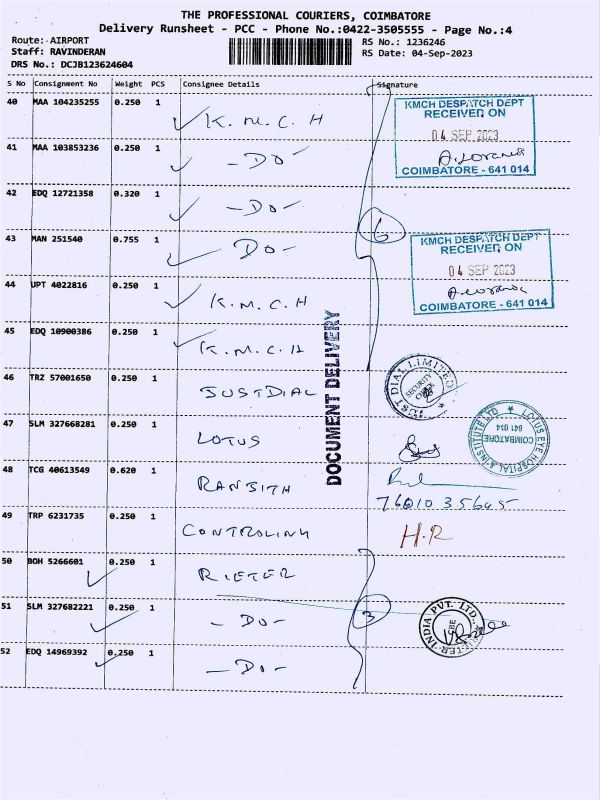 THE PROFESSIONAL COURIERS, COIMBATORE
Delivery Runsheet - PCC - Phone No.:0422-3505555 - Page No.:4
Route: AIRPORT
RS No.: 1236246
Staff: RAVINDERAN
RS Date: 04-Sep-2023
DRS No.: DCJB123624604
S No Consignment No Weight PCS Consignee Details Signature
40 MAA 104235255 0.250 1 K.M.C.H
KMCH DESPATCH DEPT
RECEIVED ON
04 SEP 2023
COIMBATORE - 641 014
41 MAA 103853236 0.250 1 -DO-
42 EDQ 12721358 0.320 1 -DO-
6
43 MAN 251540 0.755 1 DO-
KMCH DESPATCH DEPT
RECEIVED ON
04 SEP 2023
COIMBATORE - 641 014
44 UPT 4022816 0.250 1 K.M.C.H
45 EDQ 10900386 0.250 1 K.M.C.H
DOCUMENT DELIVERY
46 TRZ 57001650 0.250 1 JUSTDIAL
JUST DIAL LIMITED
SECURITY
47 SLM 327668281 0.250 1 LOTUS
LOTUS EYE HOSPITAL & INSTITUTE LTD
COIMBATORE
641 014
48 TCG 40613549 0.620 1 RANJITH
49 TRP 6231735 0.250 1 CONTROLINH
H.R
50 BOH 5266601 0.250 1 RIETER
51 SLM 327682221 0.250 1 -DO-
3
RIETER INDIA PVT. LTD.
52 EDQ 14969392 0.250 1 -DO-